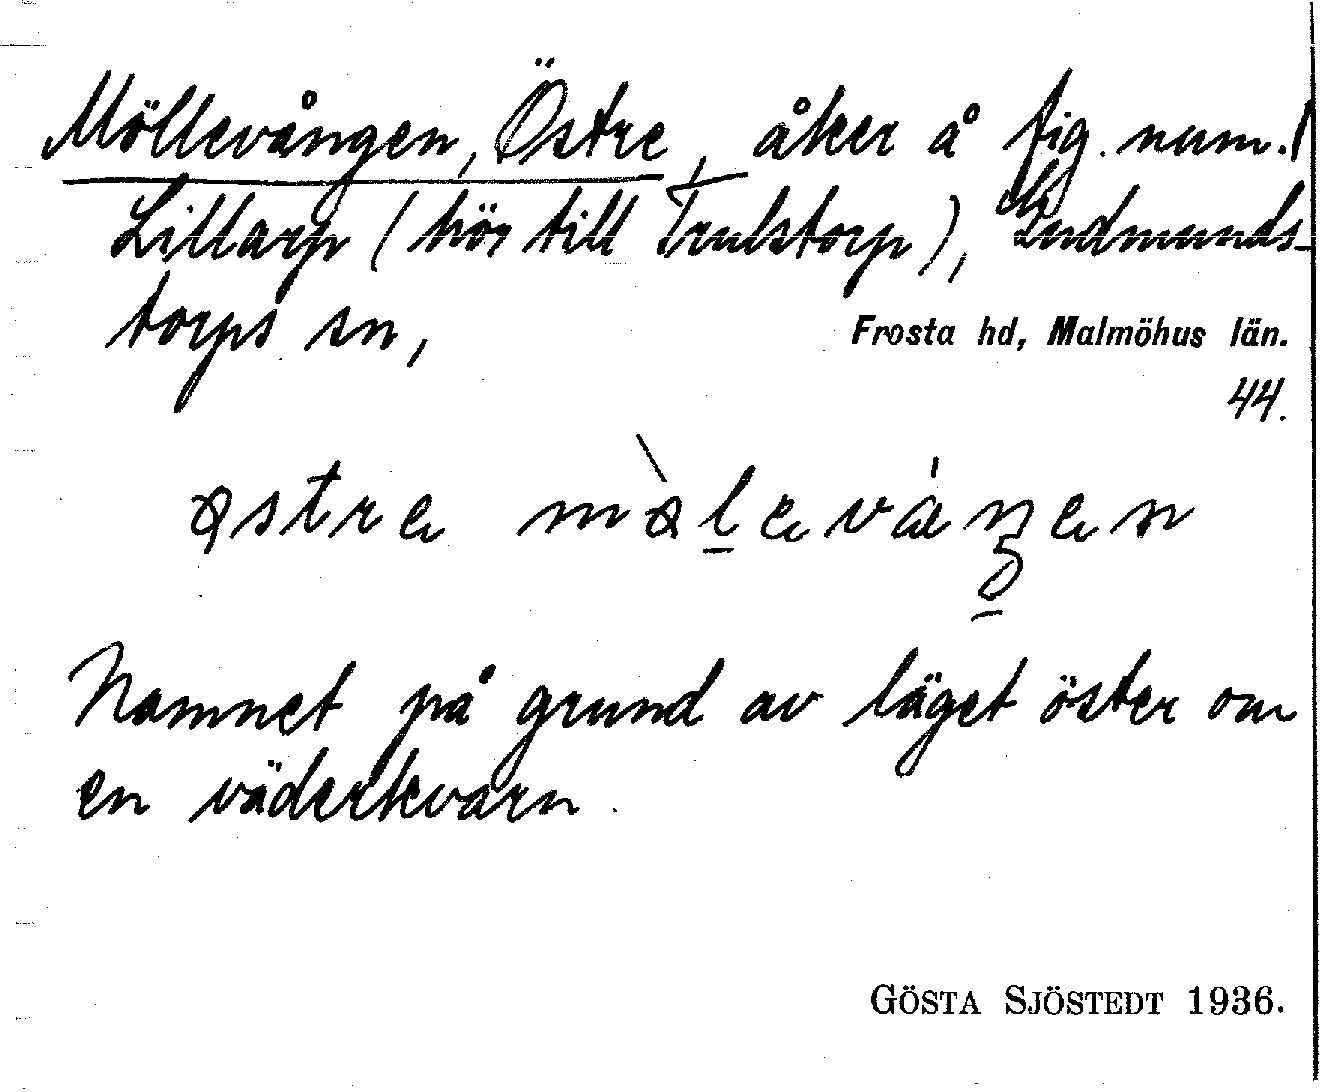 Möllevången, Östre, åker å fig. num. 1
Lillarp (hör till Trulstorp), Gudmunds-
torps sn,
Frosta hd, Malmöhus län.
44.
østre mø̀levåŋen
Namnet på grund av läget öster om
en väderkvarn.
GÖSTA SJÖSTEDT 1936.